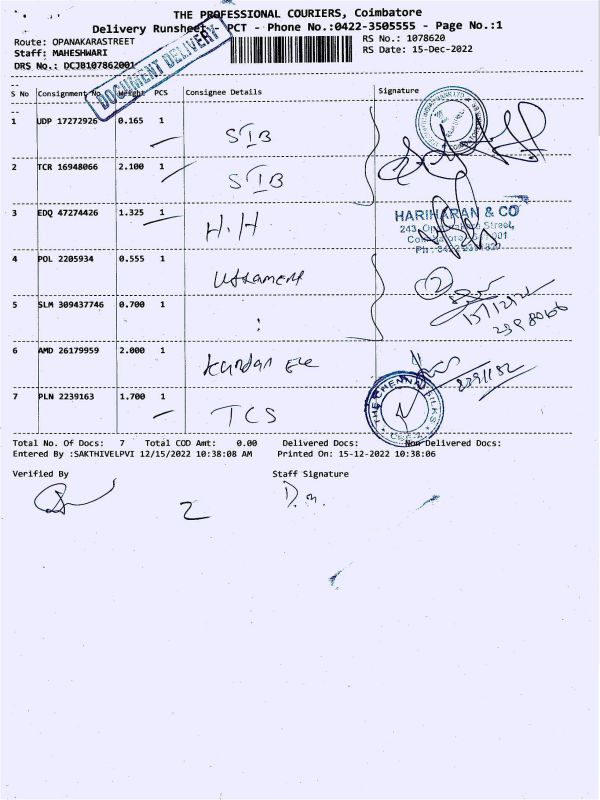 THE PROFESSIONAL COURIERS, Coimbatore
Delivery Runsheet PCT - Phone No.:0422-3505555 - Page No.:1
Route: OPANAKARASTREET
RS No.: 1078620
Staff: MAHESHWARI
RS Date: 15-Dec-2022
DRS No.: DCJB107862001
DOCUMENT DELIVERY
S No Consignment No. Weight PCS Consignee Details Signature
1 UDP 17272926 0.165 1 SIB
2 TCR 16948066 2.100 1 SIB
3 EDQ 47274426 1.325 1 H.H
HARIHARAN & CO
4 POL 2205934 0.555 1
15/12/22
2398066
5 SLM 309437746 0.700 1
6 AMD 26179959 2.000 1 Kundan Ele
7 PLN 2239163 1.700 1 TCS
THE CHENNAI SILKS
Total No. Of Docs: 7 Total COD Amt: 0.00 Delivered Docs: Non Delivered Docs:
Entered By :SAKTHIVELPVI 12/15/2022 10:38:08 AM Printed On: 15-12-2022 10:38:06
Verified By Staff Signature
2